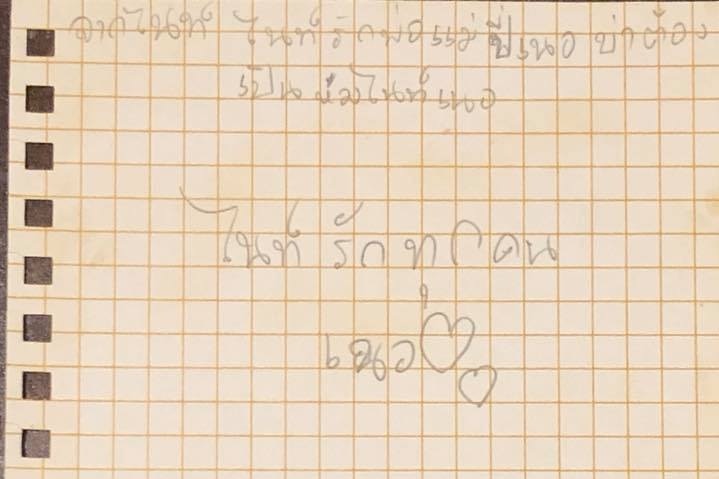 จากไนท์ ไนท์รักพ่อแม่ปี้เนอ บ่าต้อง
เป็นห่วงไนท์เนอ
ไนท์รักทุกคน
เนอ